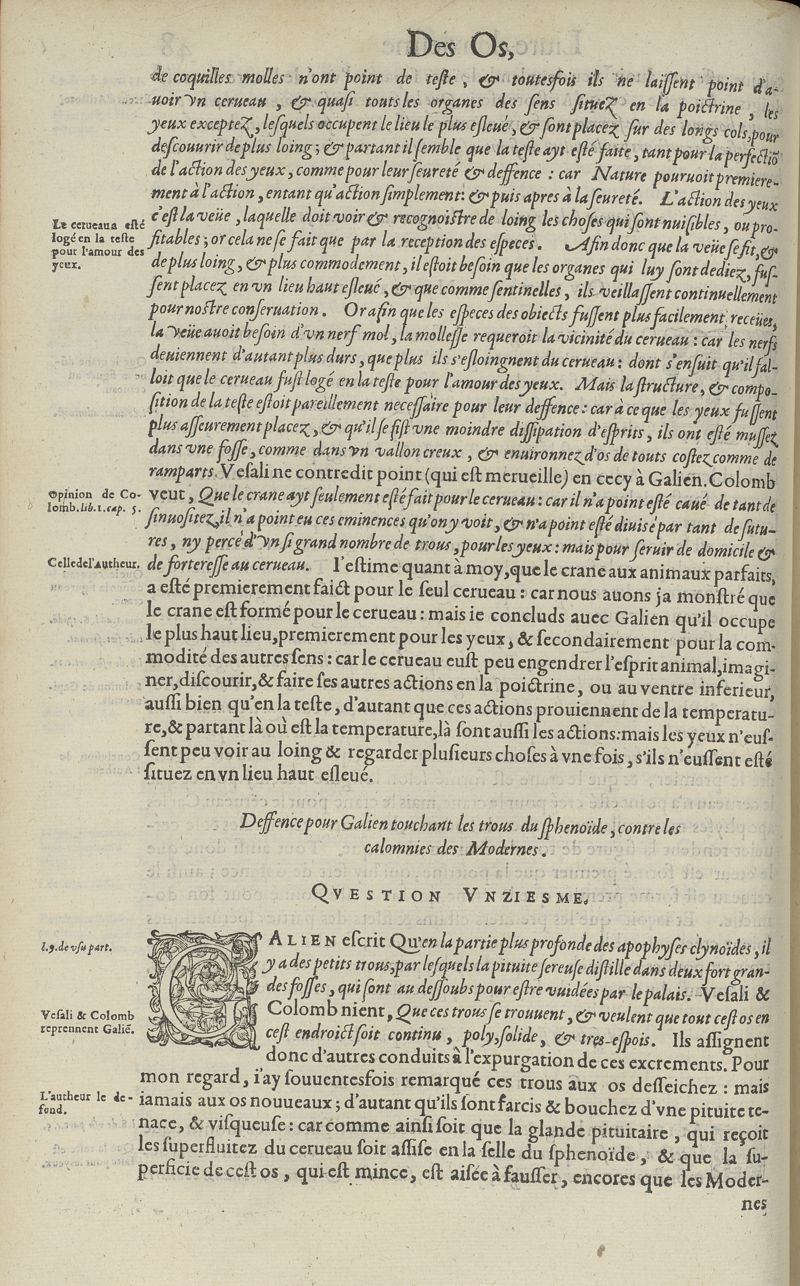 Des Os,
de coquilles molles n'ont point de teste, & toutesfois ils ne laiſſent point d'a-
uoir vn cerueau, & quaſi touts les organes des ſens ſituez en la poictrine, les
yeux exceptez, leſquels occupent le lieu le plus eſleué, & ſont placez ſur des longs cols, pour
deſcouurir de plus loing; & partant il ſemble que la teſte ayt eſté faite, tant pour la perfectiõ
de l'action des yeux, comme pour leur ſeureté & deffence: car Nature pouruoit premiere-
ment à l'action, entant qu'action ſimplement: & puis apres à la ſeureté. L'action des yeux
c'eſt la veüe, laquelle doit voir & recognoiſtre de loing les choſes qui ſont nuiſibles, ou pro-
fitables; or cela ne ſe fait que par la reception des eſpeces. Afin donc que la veüe ſe fit, &
de plus loing, & plus commodement, il eſtoit beſoin que les organes qui luy ſont dediez, fuſ-
ſent placez en vn lieu haut eſleué, & que comme ſentinelles, ils veillaſſent continuellement
pour noſtre conſeruation. Or afin que les eſpeces des obiects fuſſent plus facilement receües,
la veüe auoit beſoin d'vn nerf mol, la molleſſe requeroit la vicinité du cerueau: car les nerfs
deuiennent d'autant plus durs, que plus ils s'eſloingnent du cerueau: dont s'enſuit qu'il fal-
loit que le cerueau fuſt logé en la teſte pour l'amour des yeux. Mais la ſtructure, & compo-
ſition de la teſte eſtoit pareillement neceſſaire pour leur deffence: car à ce que les yeux fuſſent
plus aſſeurement placez, & qu'il ſe fiſt vne moindre diſſipation d'eſprits, ils ont eſté muſſez
dans vne foſſe, comme dans vn vallon creux, & enuironnez d'os de touts coſtez comme de
ramparts. Veſali ne contredit point (qui eſt merueille) en cecy à Galien. Colomb
veut, Que le crane ayt ſeulement eſté fait pour le cerueau: car il n'a point eſté caué de tant de
ſinuoſitez, il n'a point eu ces eminences qu'on y voit, & n'a point eſté diuisé par tant de ſutu-
res, ny percé d'vn ſi grand nombre de trous, pour les yeux: mais pour ſeruir de domicile &
de fortereſſe au cerueau. I'eſtime quant à moy, que le crane aux animaux parfaits,
a eſté premierement faict pour le ſeul cerueau: car nous auons ja monſtré que
le crane eſt formé pour le cerueau: mais ie concluds auec Galien qu'il occupe
le plus haut lieu, premierement pour les yeux, & ſecondairement pour la com-
modité des autres ſens: car le cerueau euſt peu engendrer l'eſprit animal, imagi-
ner, diſcourir, & faire ſes autres actions en la poictrine, ou au ventre inferieur,
auſſi bien qu'en la teſte, d'autant que ces actions prouiennent de la temperatu-
re, & partant là où eſt la temperature, là ſont auſſi les actions: mais les yeux n'euſ-
ſent peu voir au loing & regarder pluſieurs choſes à vne fois, s'ils n'euſſent eſté
ſituez en vn lieu haut eſleué.
Le cerueau a eſté
logé en la teſte
pour l'amour des
yeux.
Opinion de Co-
lomb. lib. 1. cap. 5.
Celle de l'Autheur.
Deffence pour Galien touchant les trous du ſphenoïde, contre les
calomnies des Modernes.
QVESTION VNZIESME.
GALIEN eſcrit Qu'en la partie plus profonde des apophyſes clynoïdes, il
y a des petits trous, par leſquels la pituite ſereuſe diſtille dans deux fort gran-
des foſſes, qui ſont au deſſoubs pour eſtre vuidées par le palais. Veſali &
Colomb nient, Que ces trous ſe trouuent, & veulent que tout ceſt os en
ceſt endroict ſoit continu, poly, ſolide, & tres-eſpois. Ils aſſignent
donc d'autres conduits à l'expurgation de ces excrements. Pour
mon regard, i'ay ſouuentesfois remarqué ces trous aux os deſſeichez: mais
iamais aux os nouueaux; d'autant qu'ils ſont farcis & bouchez d'vne pituite te-
nace, & viſqueuſe: car comme ainſi ſoit que la glande pituitaire, qui reçoit
les ſuperfluitez du cerueau ſoit aſſiſe en la ſelle du ſphenoïde, & que la ſu-
perficie de ceſt os, qui eſt mince, eſt aiſée à fauſſer, encores que les Moder-
nes
l. 9. de vſu part.
Veſali & Colomb
reprennent Galiẽ.
L'autheur le de-
fend.